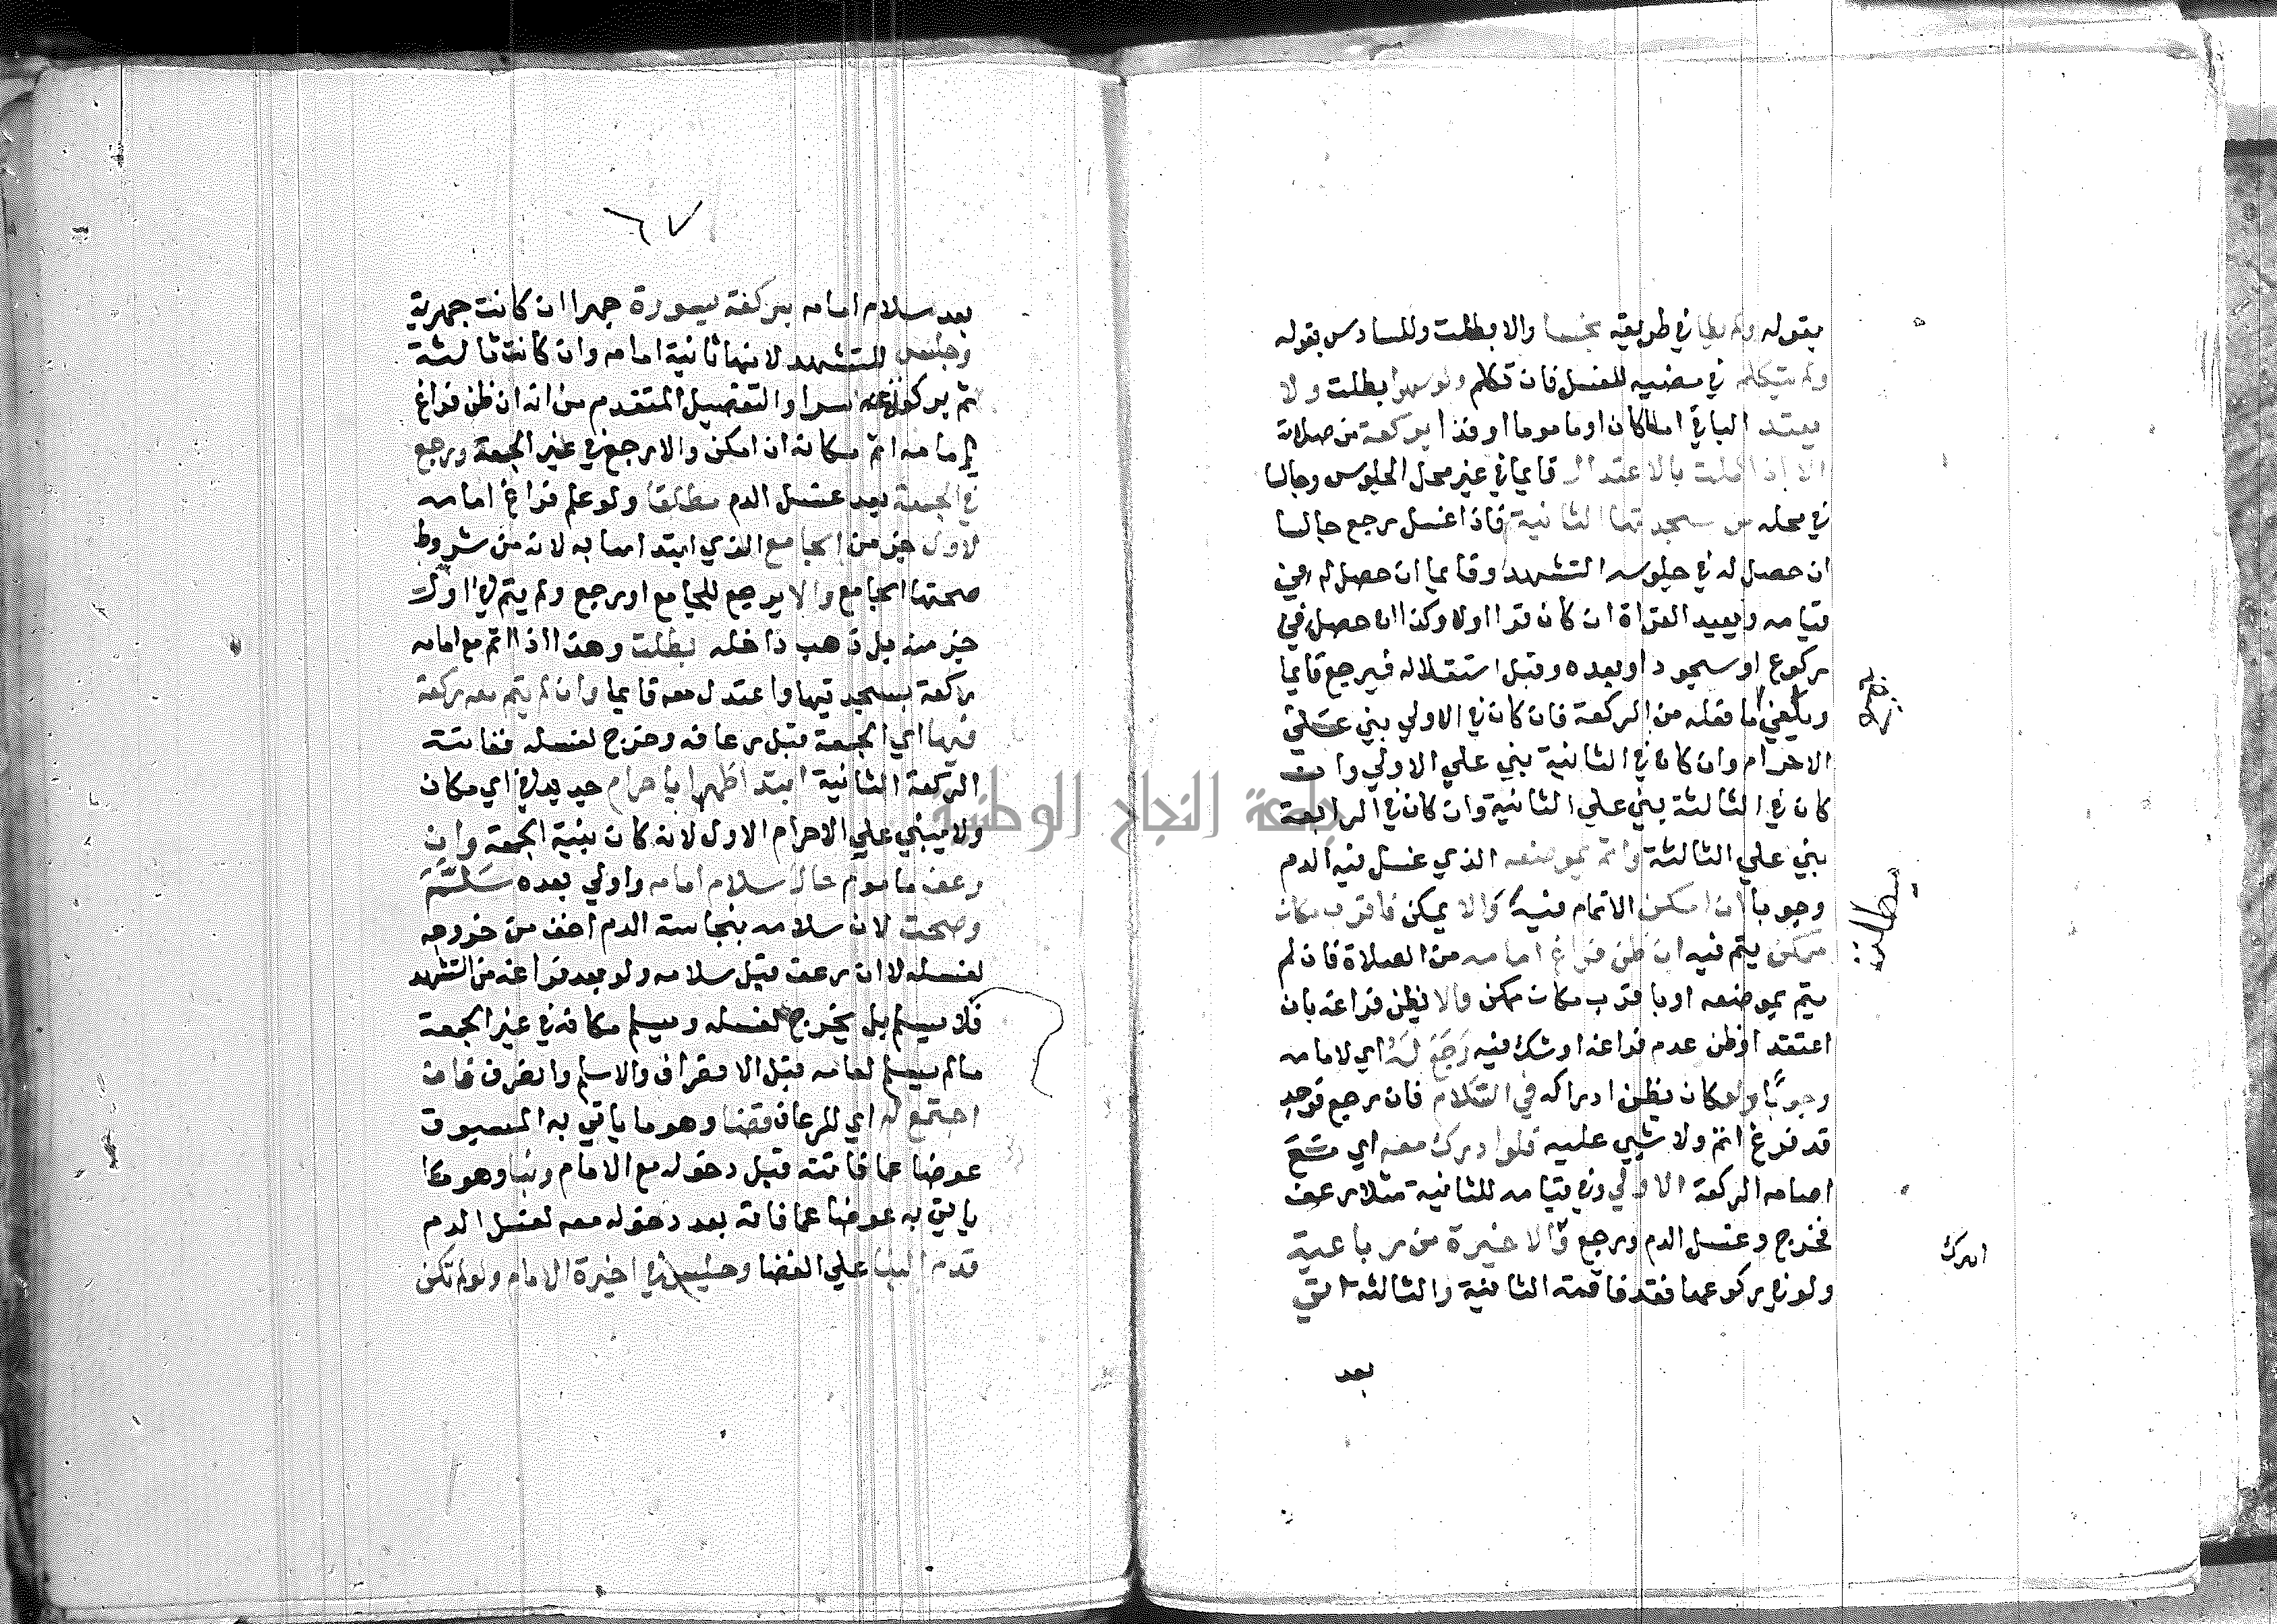 بقوله ولم يطا في طريقه نجسا والا بطلت وللسادس بقوله
ولم يتكلم في مضيه للغسل فان تكلم ولو سهوا بطلت ولا
يعتد الباني اماما كان او ماموما او فذا بركعة من صلاته
الا اذا كملت بالاعتدال قايما في غير محل الجلوس وجالسا
في محله من سجدتها الثانية فاذا غسل رجع جالسا
ان حصل له في جلوسه التشهد وقايما ان حصل له في
قيامه ويعيد القراة ان كان قرا اولا وكذا ان حصل في
ركوع او سجود او بعده وقبل استقلاله فيرجع قايما
ويلغي ما فعله من الركعة فان كان في الاولي بني علي
الاحرام وان كان في الثانية بني علي الاولي وان
كان في الثالثة بني علي الثانية وان كان في الرابعة
بني علي الثالثة واتم بموضعه الذي غسل فيه الدم
وجوبا ان امكن الاتمام فيه والا يمكن فاقرب مكان
ممكن يتم فيه ان ظن فراغ امامه من الصلاة فان لم
يتم بموضعه او باقرب مكان ممكن والا يظن فراغه بان
اعتقد او ظن عدم فراغه او شك فيه رَجَعَ لَهُ اي لامامه
وجوبًا ولو كان يظن ادراكه في السَّلام فان رجع فوجد
قد فرغ اتم ولا شيي عليه فلو ادرك معه اي مَعَ
امامه الركعة الاولي وفي قيامه للثانية مثلا رعف
فخرج وغسل الدم ورجع والاخيرة من رباعية
ولو في ركوعها فقد فاتته الثانية والثالثة اتي
بعد
مطلب
ادرك
٦٧
بعد سلام امامه بركعة بسورة جهرا ان كانت جهرية
وجلس للتشهد لانها ثانية امامه وان كانت ثالثة
ثم بركعة سرا والتفصيل المتقدم من انه ان ظن فراغ
امامه اتم مكانه ان امكن والا رجع في غير الجمعة ورجع
في الجمعة بعد غسل الدم مطلقا ولو علم فراغ امامه
لاول جزء من الجامع الذي ابتداها به لانه من شروط
صحتها الجامع والا يرجع للجامع او رجع ولم يتم في اول
جزء منه بل ذهب داخله بطلت وهذا اذا اتم مع امامه
ركعة بسجدتيها واعتدل معه قايما وان لم يتم معه ركعة
فيها اي الجمعة قبل رعافه وخرج لغسله ففاتته
الركعة الثانية ابتدا ظهرا باحرام جديد في اي مكان
ولا يبني علي الاحرام الاول لانه كان بنية الجمعة وان
رعف ماموم حال سلام امامه واولي بعده سَلَّمَ
وصحت لان سلامه بنجاسة الدم اخف من خروجه
لغسله لا ان رعف قبل سلامه ولو بعد فراغه من التشهد
فلا يسلم بل يخرج لغسله ويسلم مكانه في غير الجمعة
مالم يسلم امامه قبل الانصراف والا سلم وانصرف فان
اجتمع له اي للرعاف قضا وهو ما ياتي به المسبوق
عوضا عما فاتته قبل دخوله مع الامام وبنا وهو ما
ياتي به عوضا عما فاته بعد دخوله معه لغسل الدم
قدم البنا علي القضا وجلس في اخيرة الامام ولو لم تكن
جامعة النجاح الوطنية